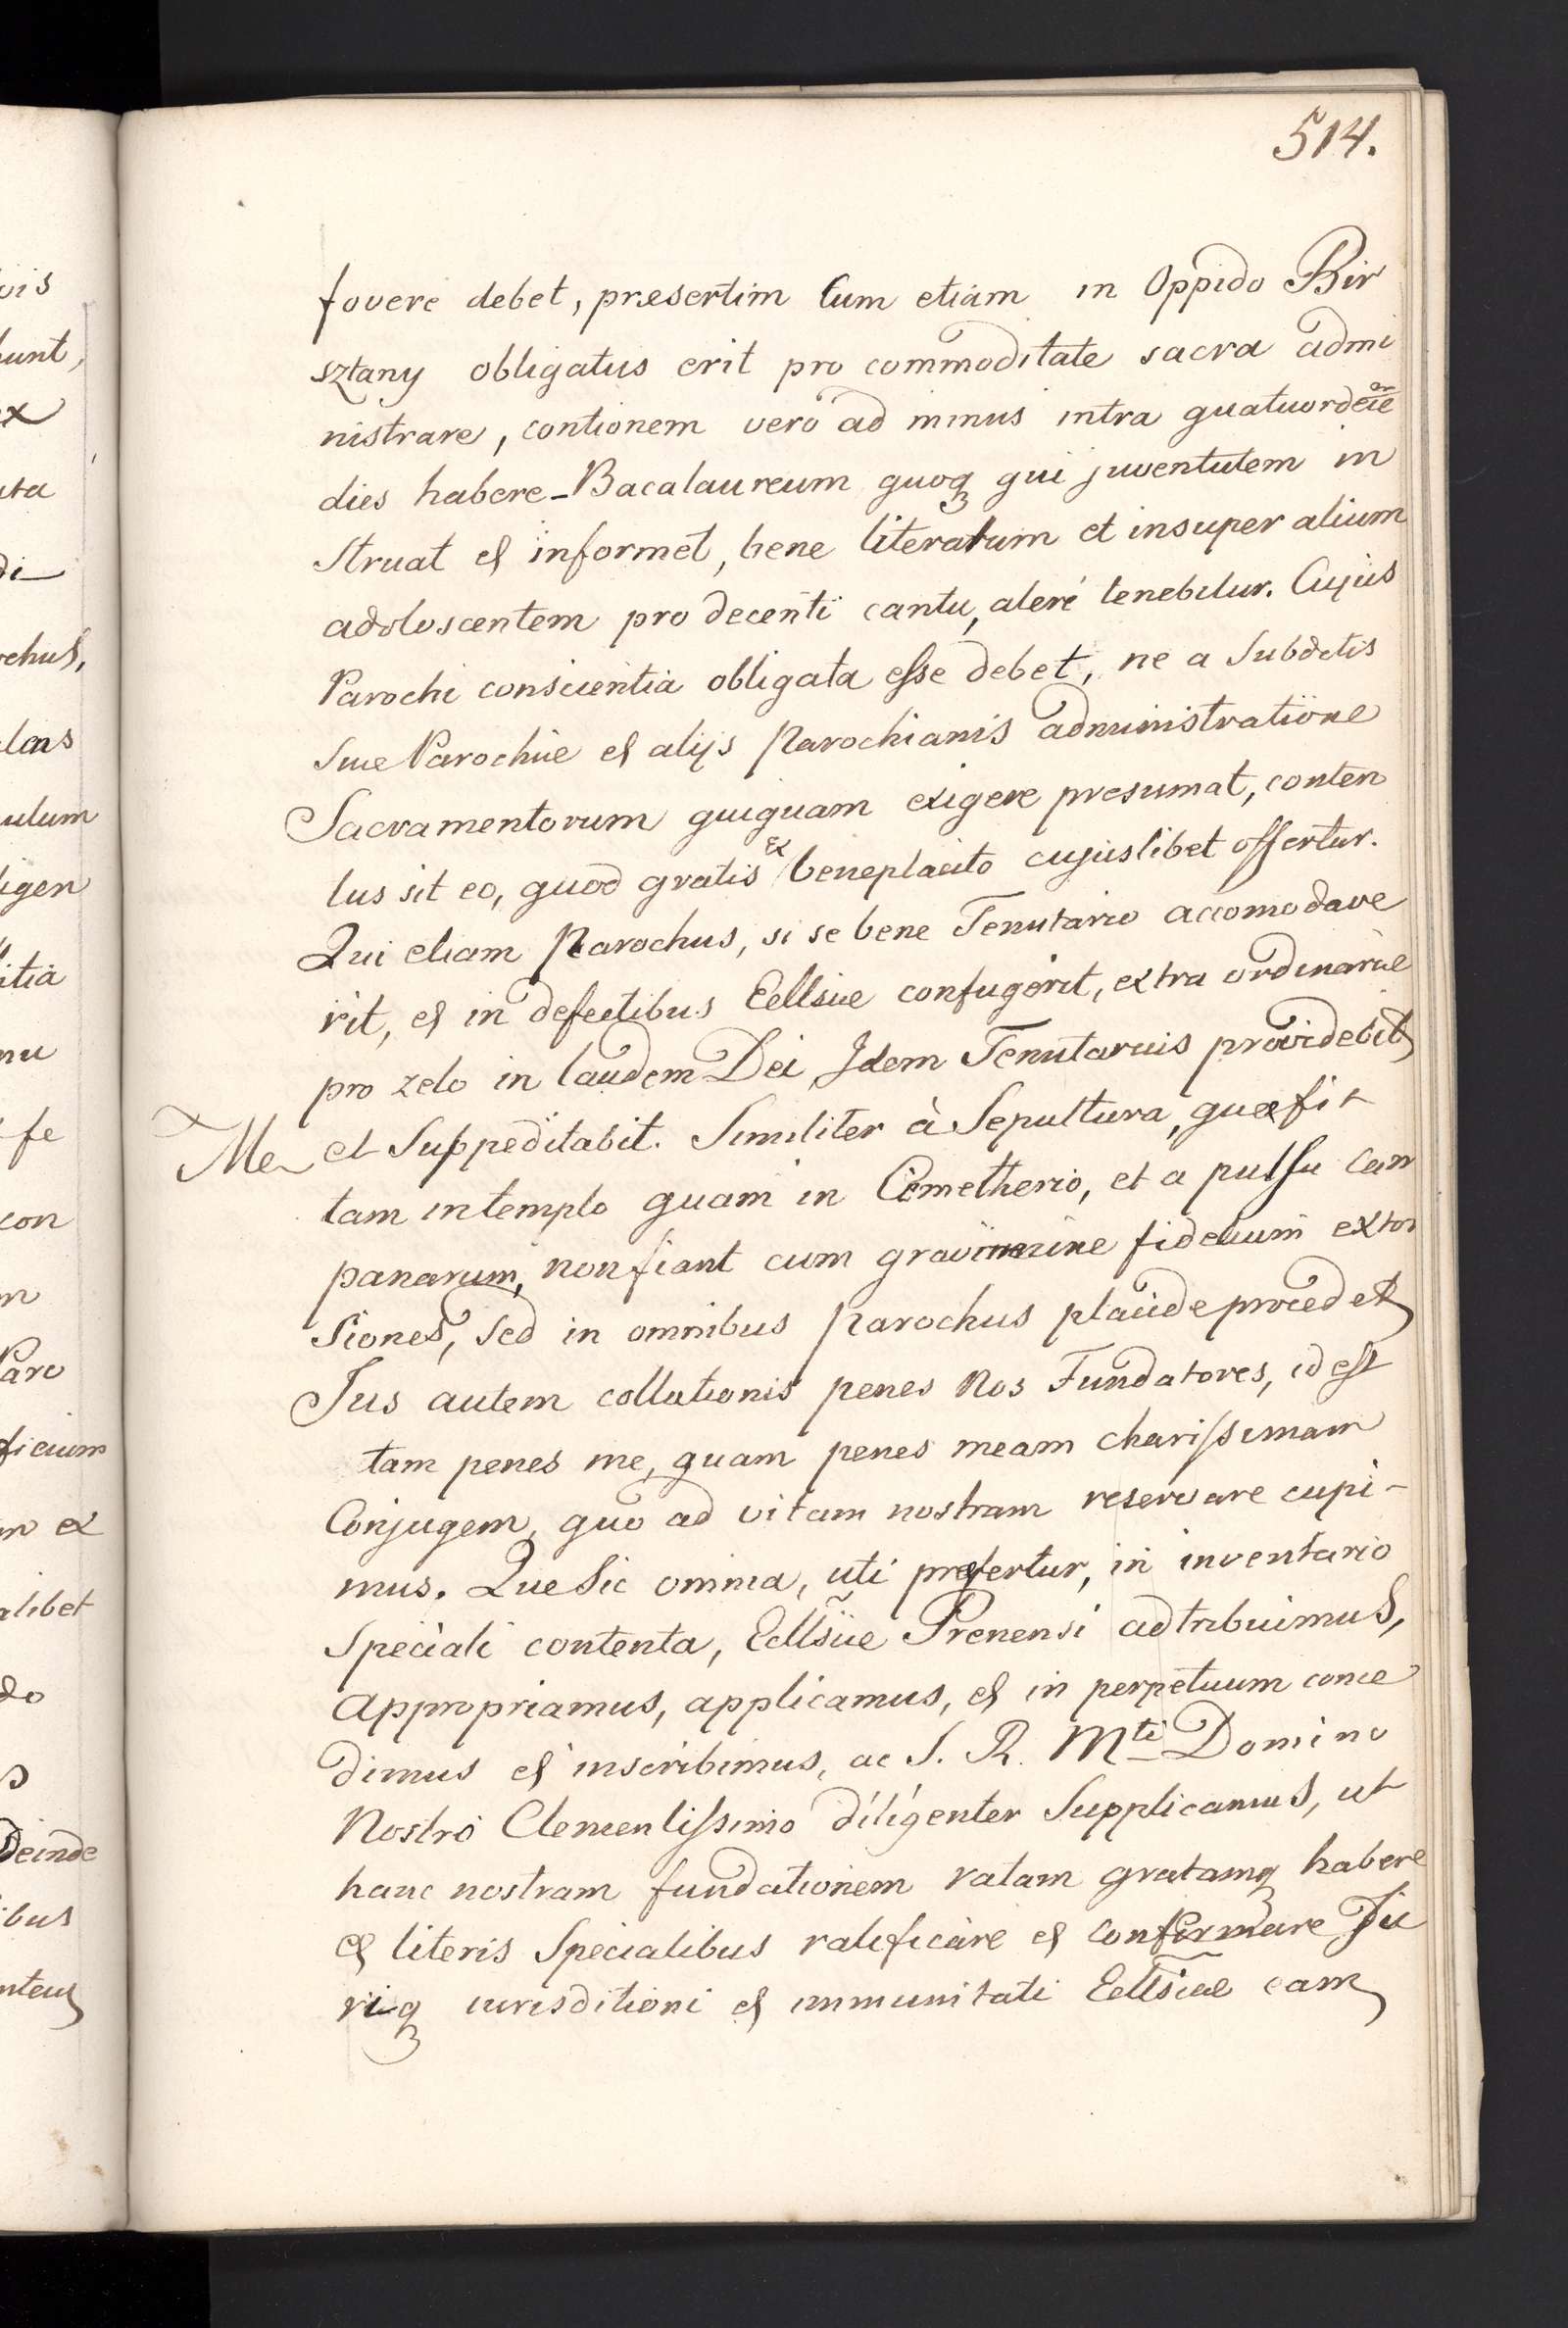 514.
fovere debet, præsertim Cum etiam in Oppido Bir
sztany obligatus erit pro commoditate sacra admi
nistrare, contionem vero ad minus intra quatuordecie
dies habere_Bacalaureum quoq3 qui juventutem in
struat et informet, bene literatum et insuper alium
adoloscentem pro decenti cantu, alere tenebitur. Cujus
Parochi conscientia obligata esse debet, ne a Subdetis
suæ Parochiæ et alijs Parochianis administratione
Sacramentorum quiquam exigere presumat, conten
tus sit eo, quod gratis ex beneplacito cujuslibet offertur.
Qui etiam Parochus, si se bene Tenutario accomodave
rit, et in defectibus Ecllsiæ confugerit, extra ordinarie
pro zelo in laudem Dei Idem Tenutarius providebit
et Suppeditabit. Similiter à Sepultura, quæ fit
tam in templo quam in Cimetherio, et a pulsu cam
panarum, non fiant cum gravimine fidelium extor
siones, sed in omnibus Parochus placide procedet
Jus autem collationis penes Nos Fundatores, id est
tam penes me, quam penes meam charissimam
Conjugem, quo ad vitam nostram reservare cupi-
mus. Que Sic omnia, uti præfertur, in inventario
Speciali contenta, Ecllsiæ Prenensi adtribuimus,
appropriamus, applicamus, et in perpetuum conce
dimus et inscribimus, ac S. R. Mti Domino
Nostro Clementissimo diligenter Supplicamus, ut
hanc nostram fundationem ratam gratamq3 habere
et literis Specialibus ratificare et confirmare Ju
riq3 iurisditioni et immunitati Ecllsiae eam
Me